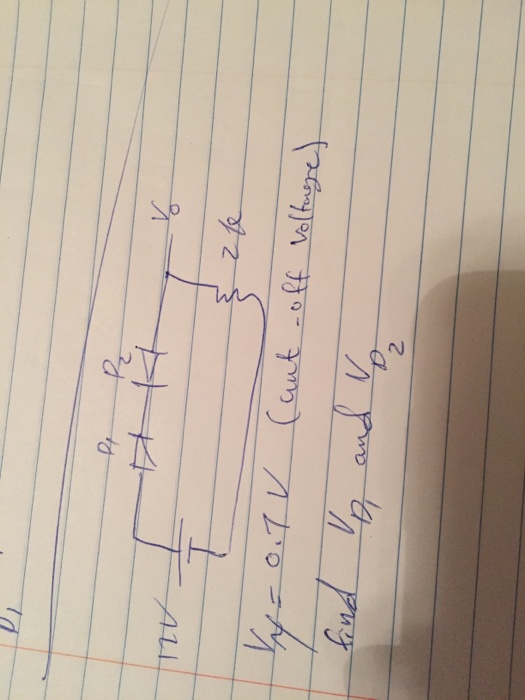 D1
12V D1 D2 Vo
2k
Vγ = 0.7 V (cut-off voltage)
find VD1 and VD2